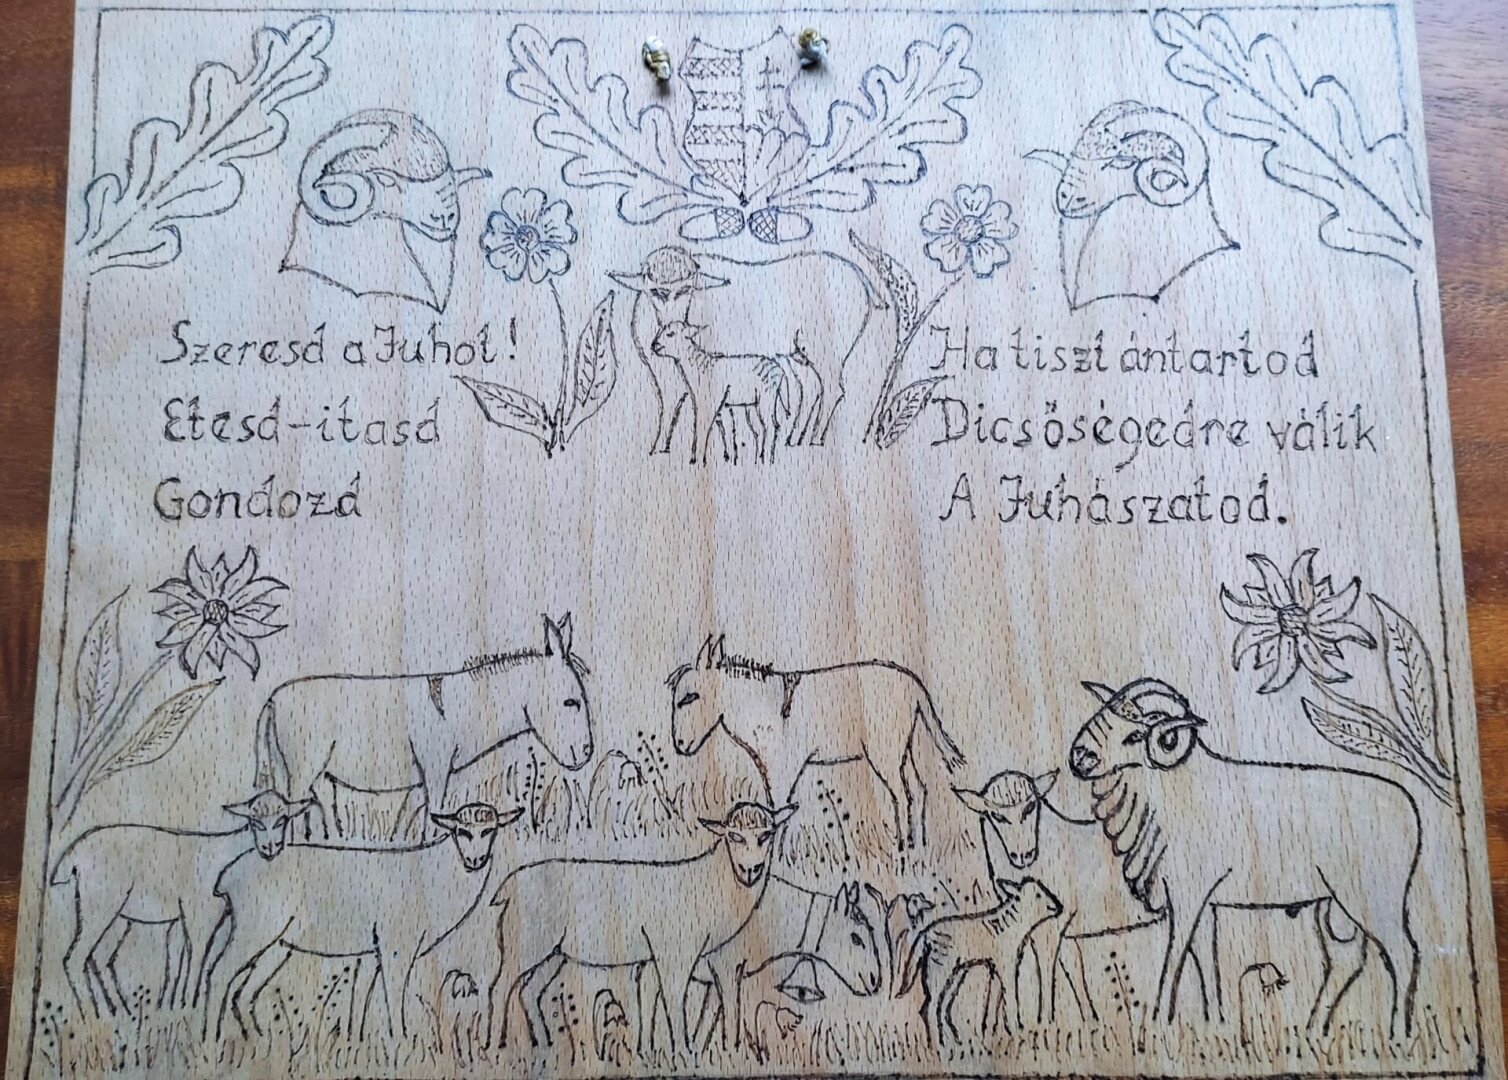 Szeresd a Juhot!
Etesd-itasd
Gondozd
Ha tiszt ántartod
Dicsőségedre válik
A Juhászatod.